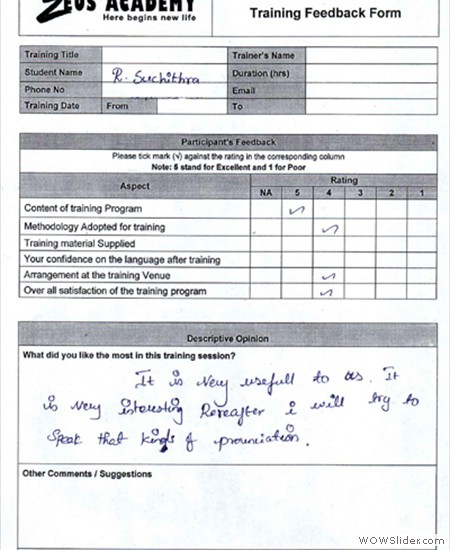 ZEUS ACADEMY
Here begins new life
Training Feedback Form
Training Title
Trainer's Name
Student Name R. Suchithra
Duration (hrs)
Phone No
Email
Training Date From
To
Participant's Feedback
Please tick mark (√) against the rating in the corresponding column
Note: 5 stand for Excellent and 1 for Poor
Aspect Rating
NA 5 4 3 2 1
Content of training Program
Methodology Adopted for training
Training material Supplied
Your confidence on the language after training
Arrangement at the training Venue
Over all satisfaction of the training program
Descriptive Opinion
What did you like the most in this training session?
It is very usefull to us. It
is very intoresting Hereafter i will try to
Speak that kinds of prounciation.
Other Comments / Suggestions
WOWSlider.com